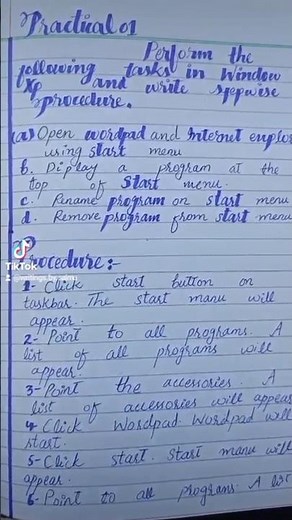 Practical 01
Perform the
following tasks in Window
Xp and write stepwise
procedure.
(a) Open wordpad and Internet explor
using start menu
b. Display a program at the
top of Start menu.
c. Rename program on start menu
d. Remove program from start menu
Procedure:-
1- Click start button on
taskbar. The start manu will
appear.
2- Point to all programs. A
list of all programs will
appear
3- Point the accessories. A
list of accessories will appear
4- Click Wordpad Wordpad will
start.
5- Click start. Start manu will
appear.
6- Point to all programs. A list
TikTok